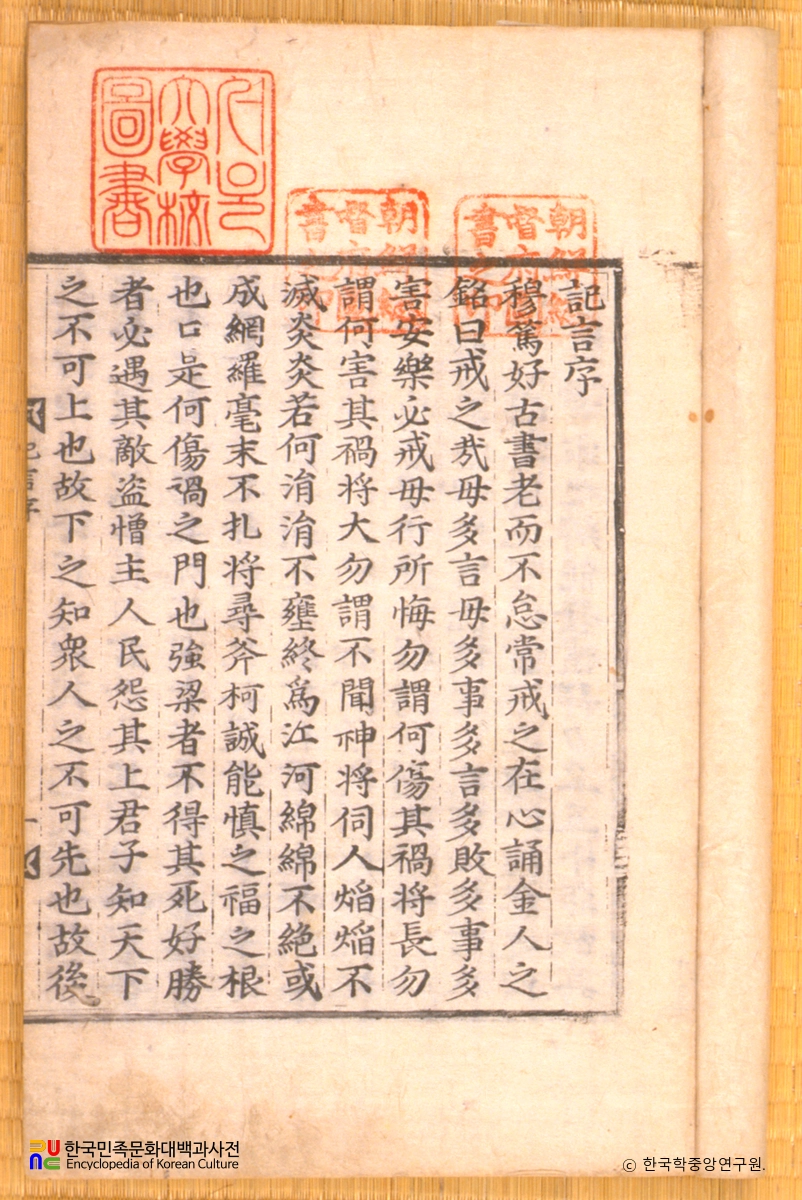 記言序
穆篤好古書老而不怠常戒之在心誦金人之
銘曰戒之㢤毋多言毋多事多言多敗多事多
害安樂必戒毋行所悔勿謂何傷其禍將長勿
謂何害其禍將大勿謂不聞神將伺人焰焰不
滅炎炎若何涓涓不壅終爲江河綿綿不絶或
成網羅毫末不扎將尋斧柯誠能慎之福之根
也口是何傷禍之門也強梁者不得其死好勝
者必遇其敵盗憎主人民怨其上君子知天下
之不可上也故下之知衆人之不可先也故後
記言序
一
大學校
圖書
朝鮮總
督府圖
書之印
朝鮮總
督府圖
書之印
한국민족문화대백과사전
Encyclopedia of Korean Culture
© 한국학중앙연구원.